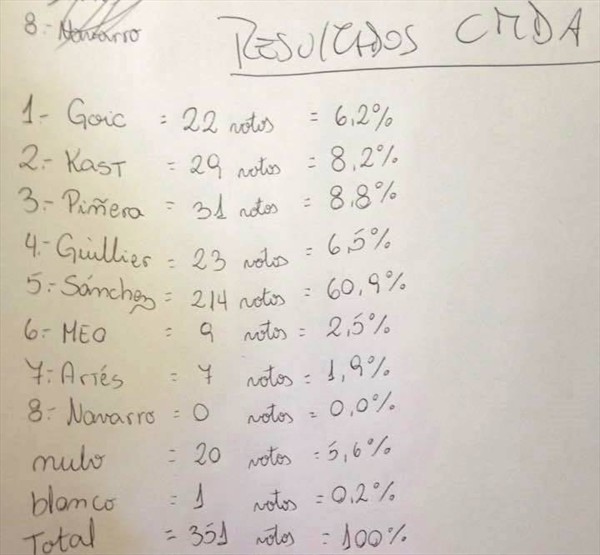 8.- Navarro
RESULTADOS CMDA
1.- Goic = 22 votos = 6,2%
2.- KAST = 29 votos = 8,2%
3.- Piñera = 31 votos = 8,8%
4.- Guillier = 23 votos = 6,5%
5.- Sánchez = 214 votos = 60,9%
6.- MEO = 9 votos = 2,5%
7.- Artés = 7 votos = 1,9%
8.- Navarro = 0 votos = 0,0%
nulo = 20 votos = 5,6%
blanco = 1 votos = 0,2%
Total = 351 votos = 100%